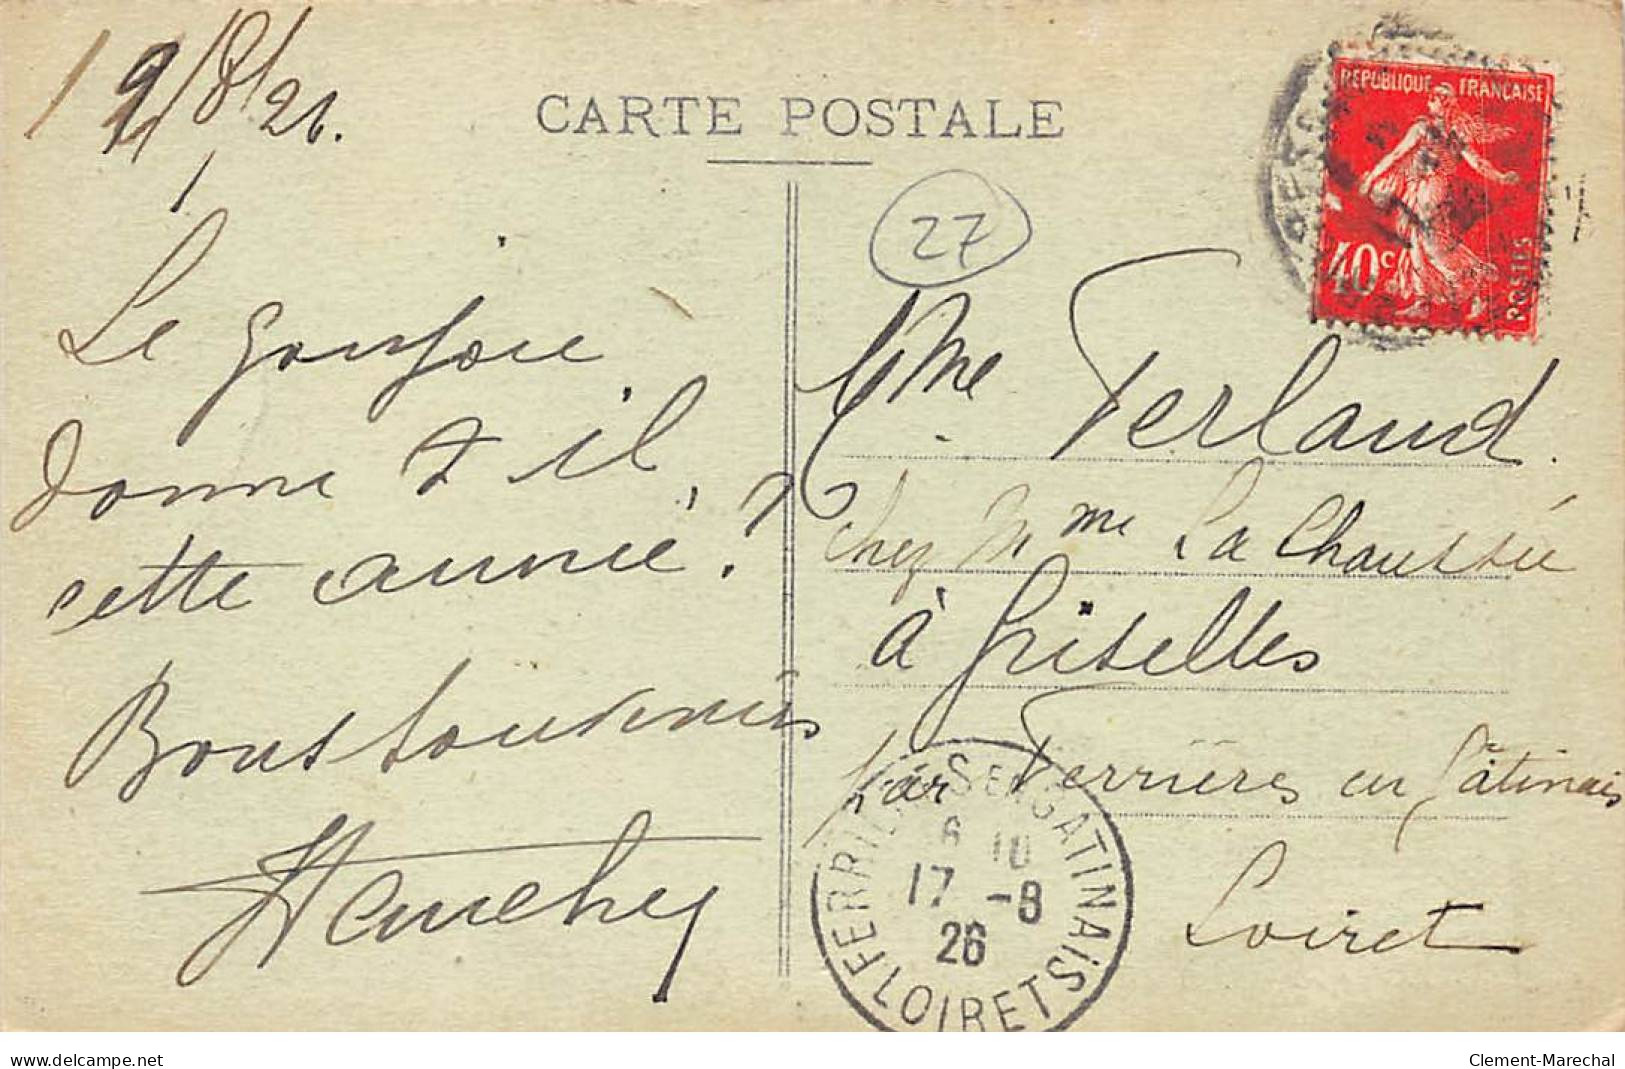 19/8/26.
CARTE POSTALE
27
RÉPUBLIQUE FRANÇAISE
40c
POSTES
Le goujon
donne t il
cette année ?
Bons souvenirs
Mme Ferland
chez Mme La Chaussée
à Griselles
par Ferrières en Gâtinais
Loiret
FERRIÈRES EN GATINAIS
6 10
17 -8
26
LOIRET
www.delcampe.net
Clement-Marechal